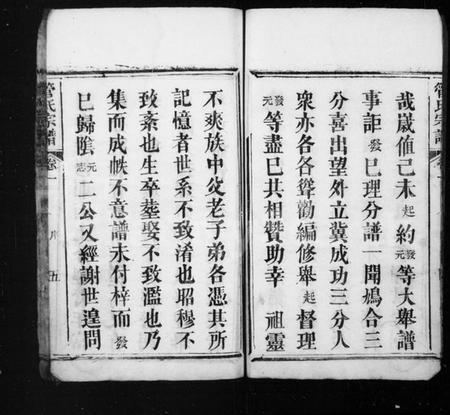 管氏宗譜 卷一
哉歲值己未起約發元等大舉譜
事詎發巳理分譜一聞鳩合三
分喜出望外立冀成功三分人
衆亦各各聳勸編修舉起督理
發元等盡巳其相贊助幸 祖靈
不爽族中父老子弟各憑其所
記憶者世系不致淆也昭穆不
致紊也生卒塟娶不致濫也乃
集而成帙不意譜未付梓而發
巳歸陰元志二公又經謝世遑問
管氏宗譜 卷一 序 五